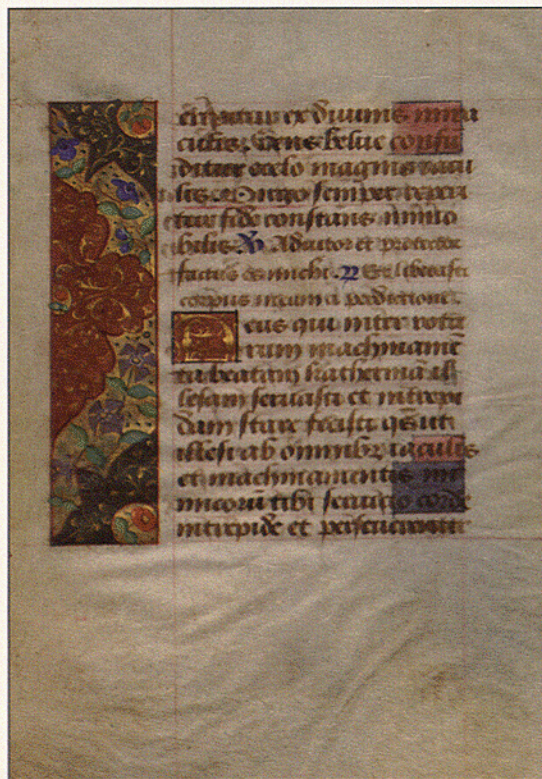 ex diuinis mira
culis. Gens
ditur ocelo magnis iacu
lis. Virgo semper reperi
tur fide constans immo
bilis. V Adiutor et protector
factus es michi. R Et liberasti
corpus meum a perditione.
Deus qui inter rotarum
rum machiname
ta beatam katherinā il
lesam seruasti et intrepi
dam stare fecisti qs ut
illesi ab omnibꝫ iaculis
et machinamentis ini
micorū tibi corde
intrepide et perseueranter